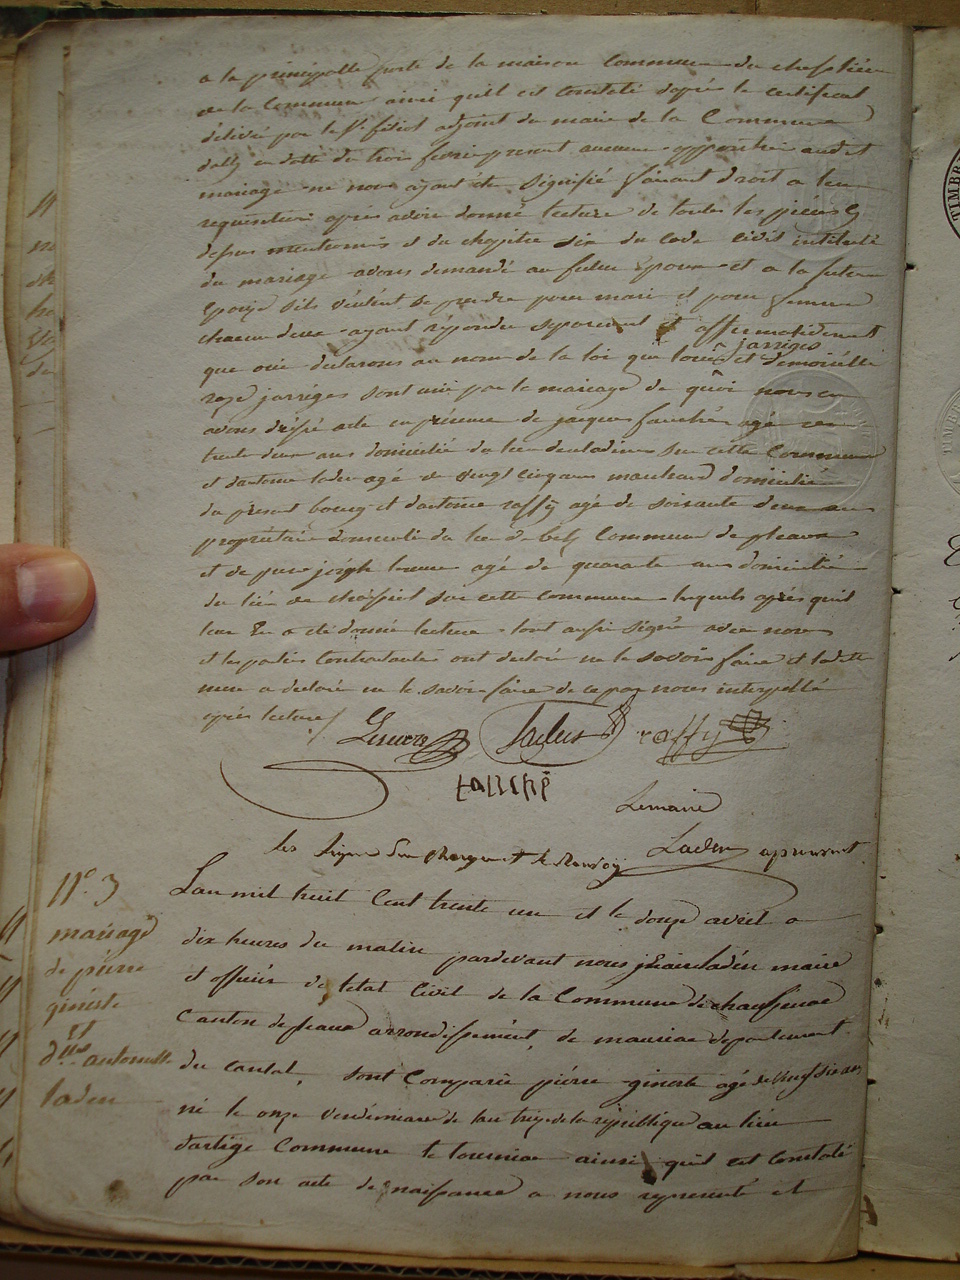 a la principalle porte de la maison Commune du cheflieu
de la Commune ainsi quil est Constaté dapré le certificat
délivré par le Sr filiol adjoint du maire de la Commune
dally en datte du trois fevrier present aucune opposition audit
mariage ne nous ayant été Signifié faisant droit a leur
requisition aprés avoir donné lecture de toutes les piéces
depus mentionnés et du chapitre six du Code Civil intitulé
du mariage avons demandé au futur Epoux et a la future
Epouse Sils veulent Se prendre pour mari et pour femme
chacun deux ayant répondu separement et affirmativement
jarriges
que oui declarons au nom de la loi que louis et demoiselle
rose jarriges Sont unis par le mariage de quoi nous en
avons dréssé acte en présence de jacques fauché agé de
trente deux ans domicilié du lieu de sur cette Commune
et dantoine laden agé de vingt cinq ans marchand domicilié
du present bourg et dantoine raffy agé de soixante deux ans
propriétaire domicilié du lieu de Commune de pleaux
et de joseph agé de quarante ans domicilié
du lieu de sur cette commune lesquels aprés quil
leur En a été donné lecture tout ausi Signé avec nous
et les parties Contractantes ont declaré ne le Savoir faire et ladite
mere a declaré ne le Savoir faire de ce par nous interpellé
aprés lecture
laden raffy
Lemaire
Laden
les
N° 3
mariage
de pierre
gineste
et
dlle antoinette
laden
Lan mil huit Cent trente un et le douze avril a
dix heures du matin pardevant nous jean laden maire
et officier de letat Civil de la Commune de chaussenac
Canton de pleaux arrondissement de mauriac departement
du cantal, Sont Comparu pierre gineste agé de vingt six ans
né le onze vendémiaire de lan treize de la république au lieu
dartige Commune de tourniac ainsi quil est Constaté
par Son acte de naissance a nous representé et